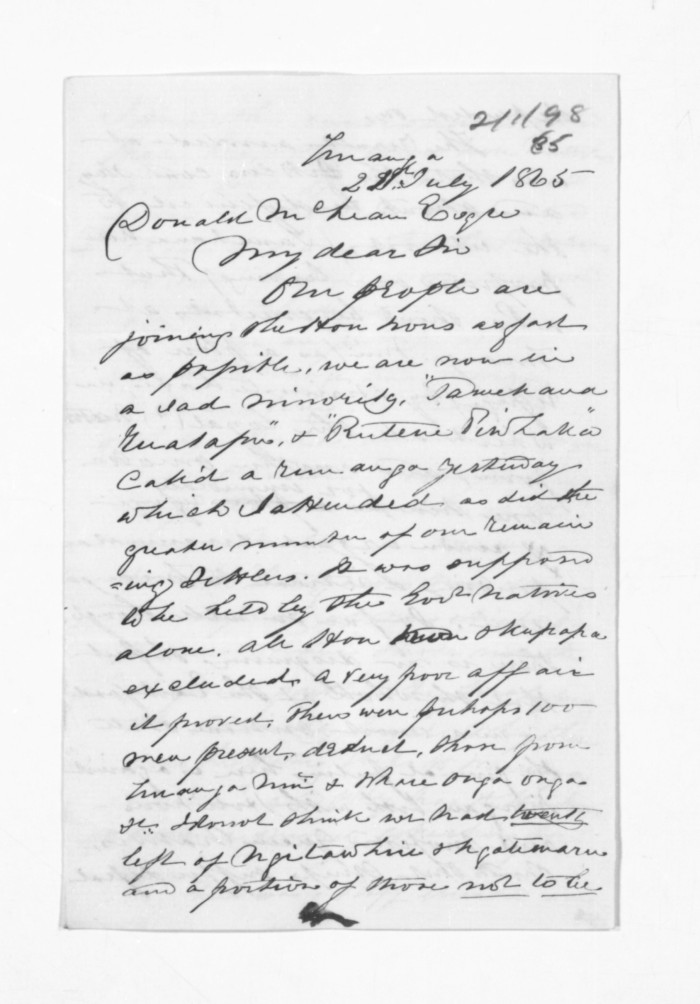 2/1/98
65
Turanga
22d. July 1865
Donald McLean Esqre
My dear Sir
Our people are
joining the Hou hous as fast
as possible, we are now in
a sad minority, "Tamehana
Ruatapu", & "Rutene"
Call'd a runanga yesterday
which I attended as did the
greater number of our remain
=ing settlers. It was supposed
to be held by the Govt. natives
alone. all Hou hous & Kupapa
excluded, a very poor affair
it proved, there were perhaps 100
men present, deduct, those from
Turanga & Whare onga onga
&c. I do not think we had twenty
left of Ngitawhire & Ngatimaru
and a portion of those not to be